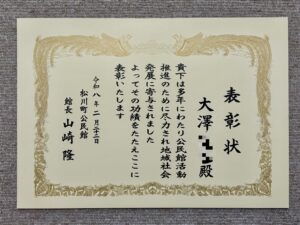 表彰状
大澤 殿
貴下は多年にわたり公民館活動
推進のために尽力され地域社会
発展に寄与されました
よってその功績をたたえここに
表彰いたします
令和八年二月二十二日
松川町公民館
館長 山﨑 隆